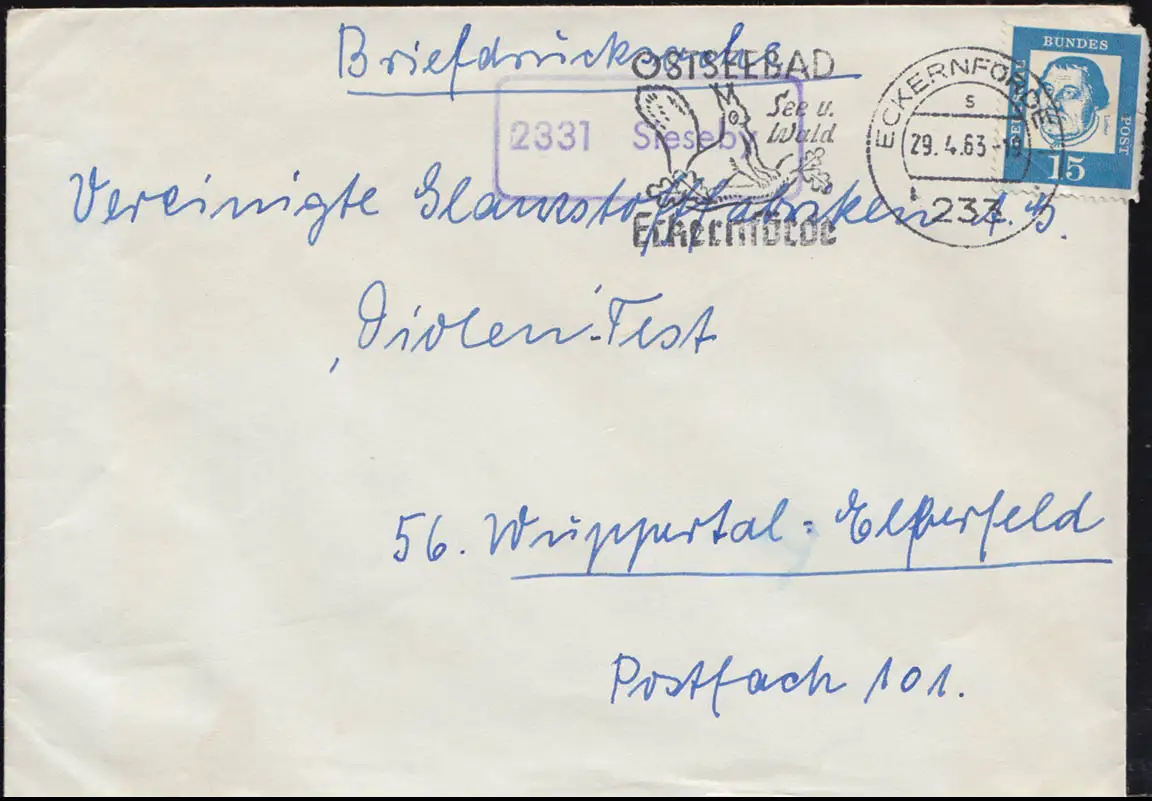 Briefdrucksache
OSTSEEBAD
See u.
Wald
Eckernförde
2331 Sieseby
ECKERNFÖRDE
s
29. 4. 63 - 19
233
BUNDES
POST
15
Vereinigte Glanzstoff-Fabriken A.G.
Diolen-Test
56. Wuppertal-Elberfeld
Postfach 101.